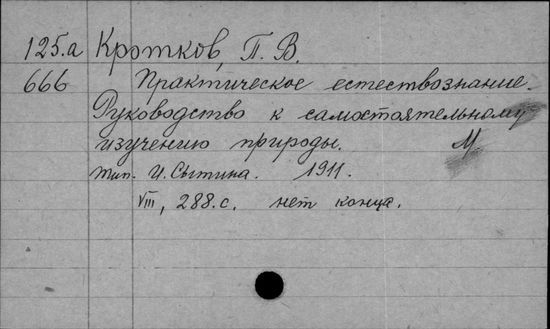 125.а Кротков, П. В.
666 Практическое естествознание.
Руководство к самостоятельному
изучению природы. М
тип. И. Сытина. 1911.
VIII, 288.с. нет конца.